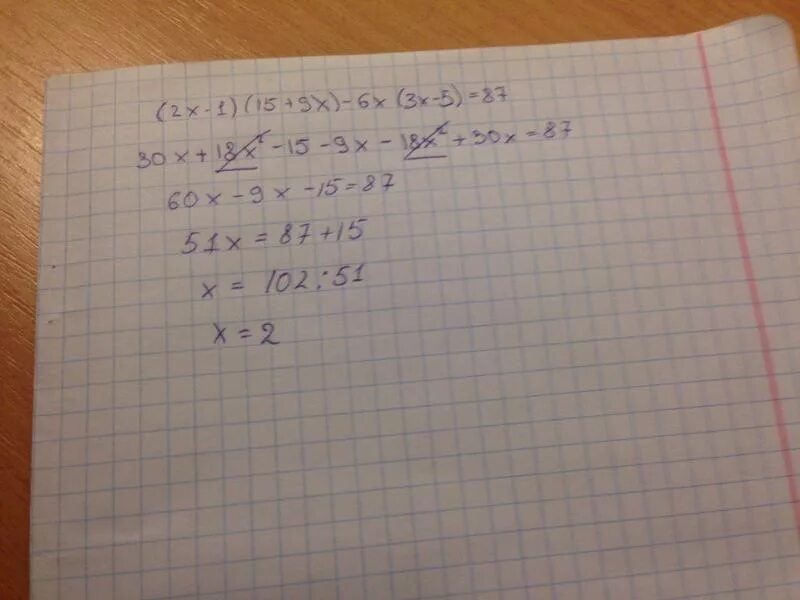 (2x-1)(15+9x)-6x(3x-5)=87
30x+18x²-15-9x-18x²+30x=87
60x-9x-15=87
51x=87+15
x=102:51
x=2